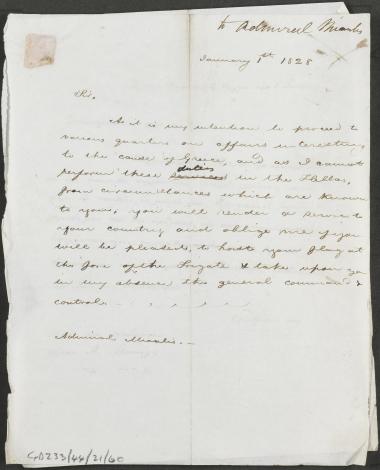 to Admiral Miaulis
January 1st 1828
Sir,
As it is my intention to proceed to
various quarters on affairs interesting
to the cause of Greece, and as I cannot
duties
perform these services in the Hellas,
from circumstances which are known
to you, you will render a service to
your country and oblige me if you
will be pleased, to hoist your flag at
the fore of the frigate & take upon you
in my absence the general command &
control
Admiral Miaulis. —
GD233/44/21/60